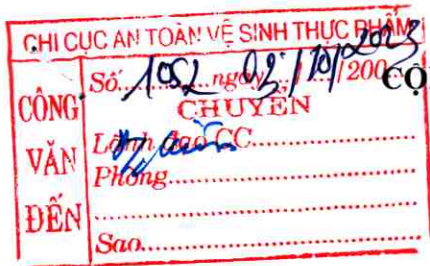 CHI CỤC AN TOÀN VỆ SINH THỰC PHẨM
CÔNG VĂN ĐẾN
Số 1052 ngày 03/10/2023 /200
CỘ
CHUYỂN
Lãnh đạo CC
Phòng
Sao